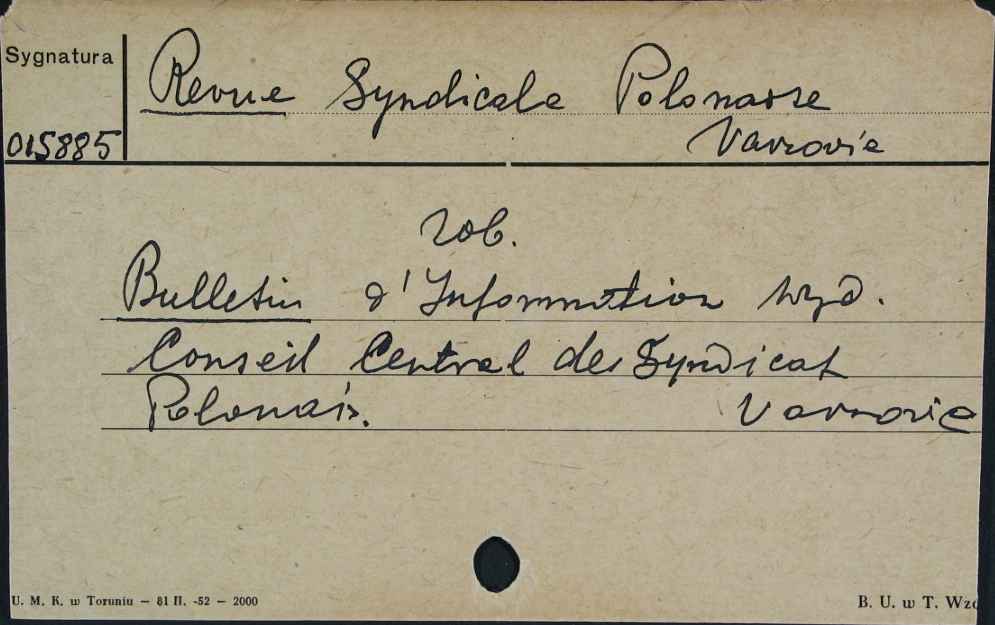 Sygnatura
Revue Syndicale Polonaise
015885
Varsovie
Zob.
Bulletin d'Information Wyd.
Conseil Central des Syndicat
Polonais. Varsovie
U. M. K. w Toruniu — 81 II. -52 — 2000
B. U. w T. Wzó